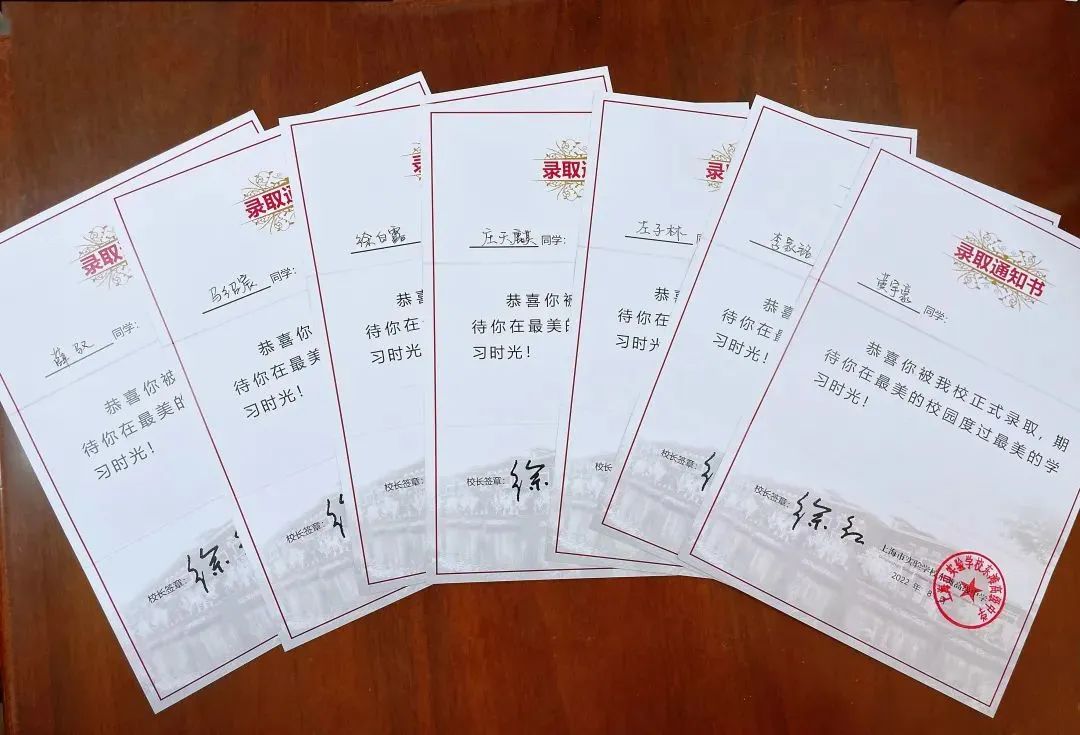 录取
薛驭 同学：
恭喜你被
待你在最美的
习时光！
校长签章：徐
录取通
马绍宸 同学：
恭喜你
待你在最美
习时光！
校长签章：
录
徐白露
恭喜
待你在
习时光
校长签章：
录取通
庄天麒 同学：
恭喜你被
待你在最美的
习时光！
校长签章：徐
录取
左子林 同
恭喜
待你在
习时光
校长
李家铭
恭喜你
待你在最美
习时光！
校长签章：
录取通知书
黄宇豪 同学：
恭喜你被我校正式录取，期
待你在最美的校园度过最美的学
习时光！
校长签章：徐红
上海市实验学校东滩高级中学
2022 年 8
上海市实验学校东滩高级中学